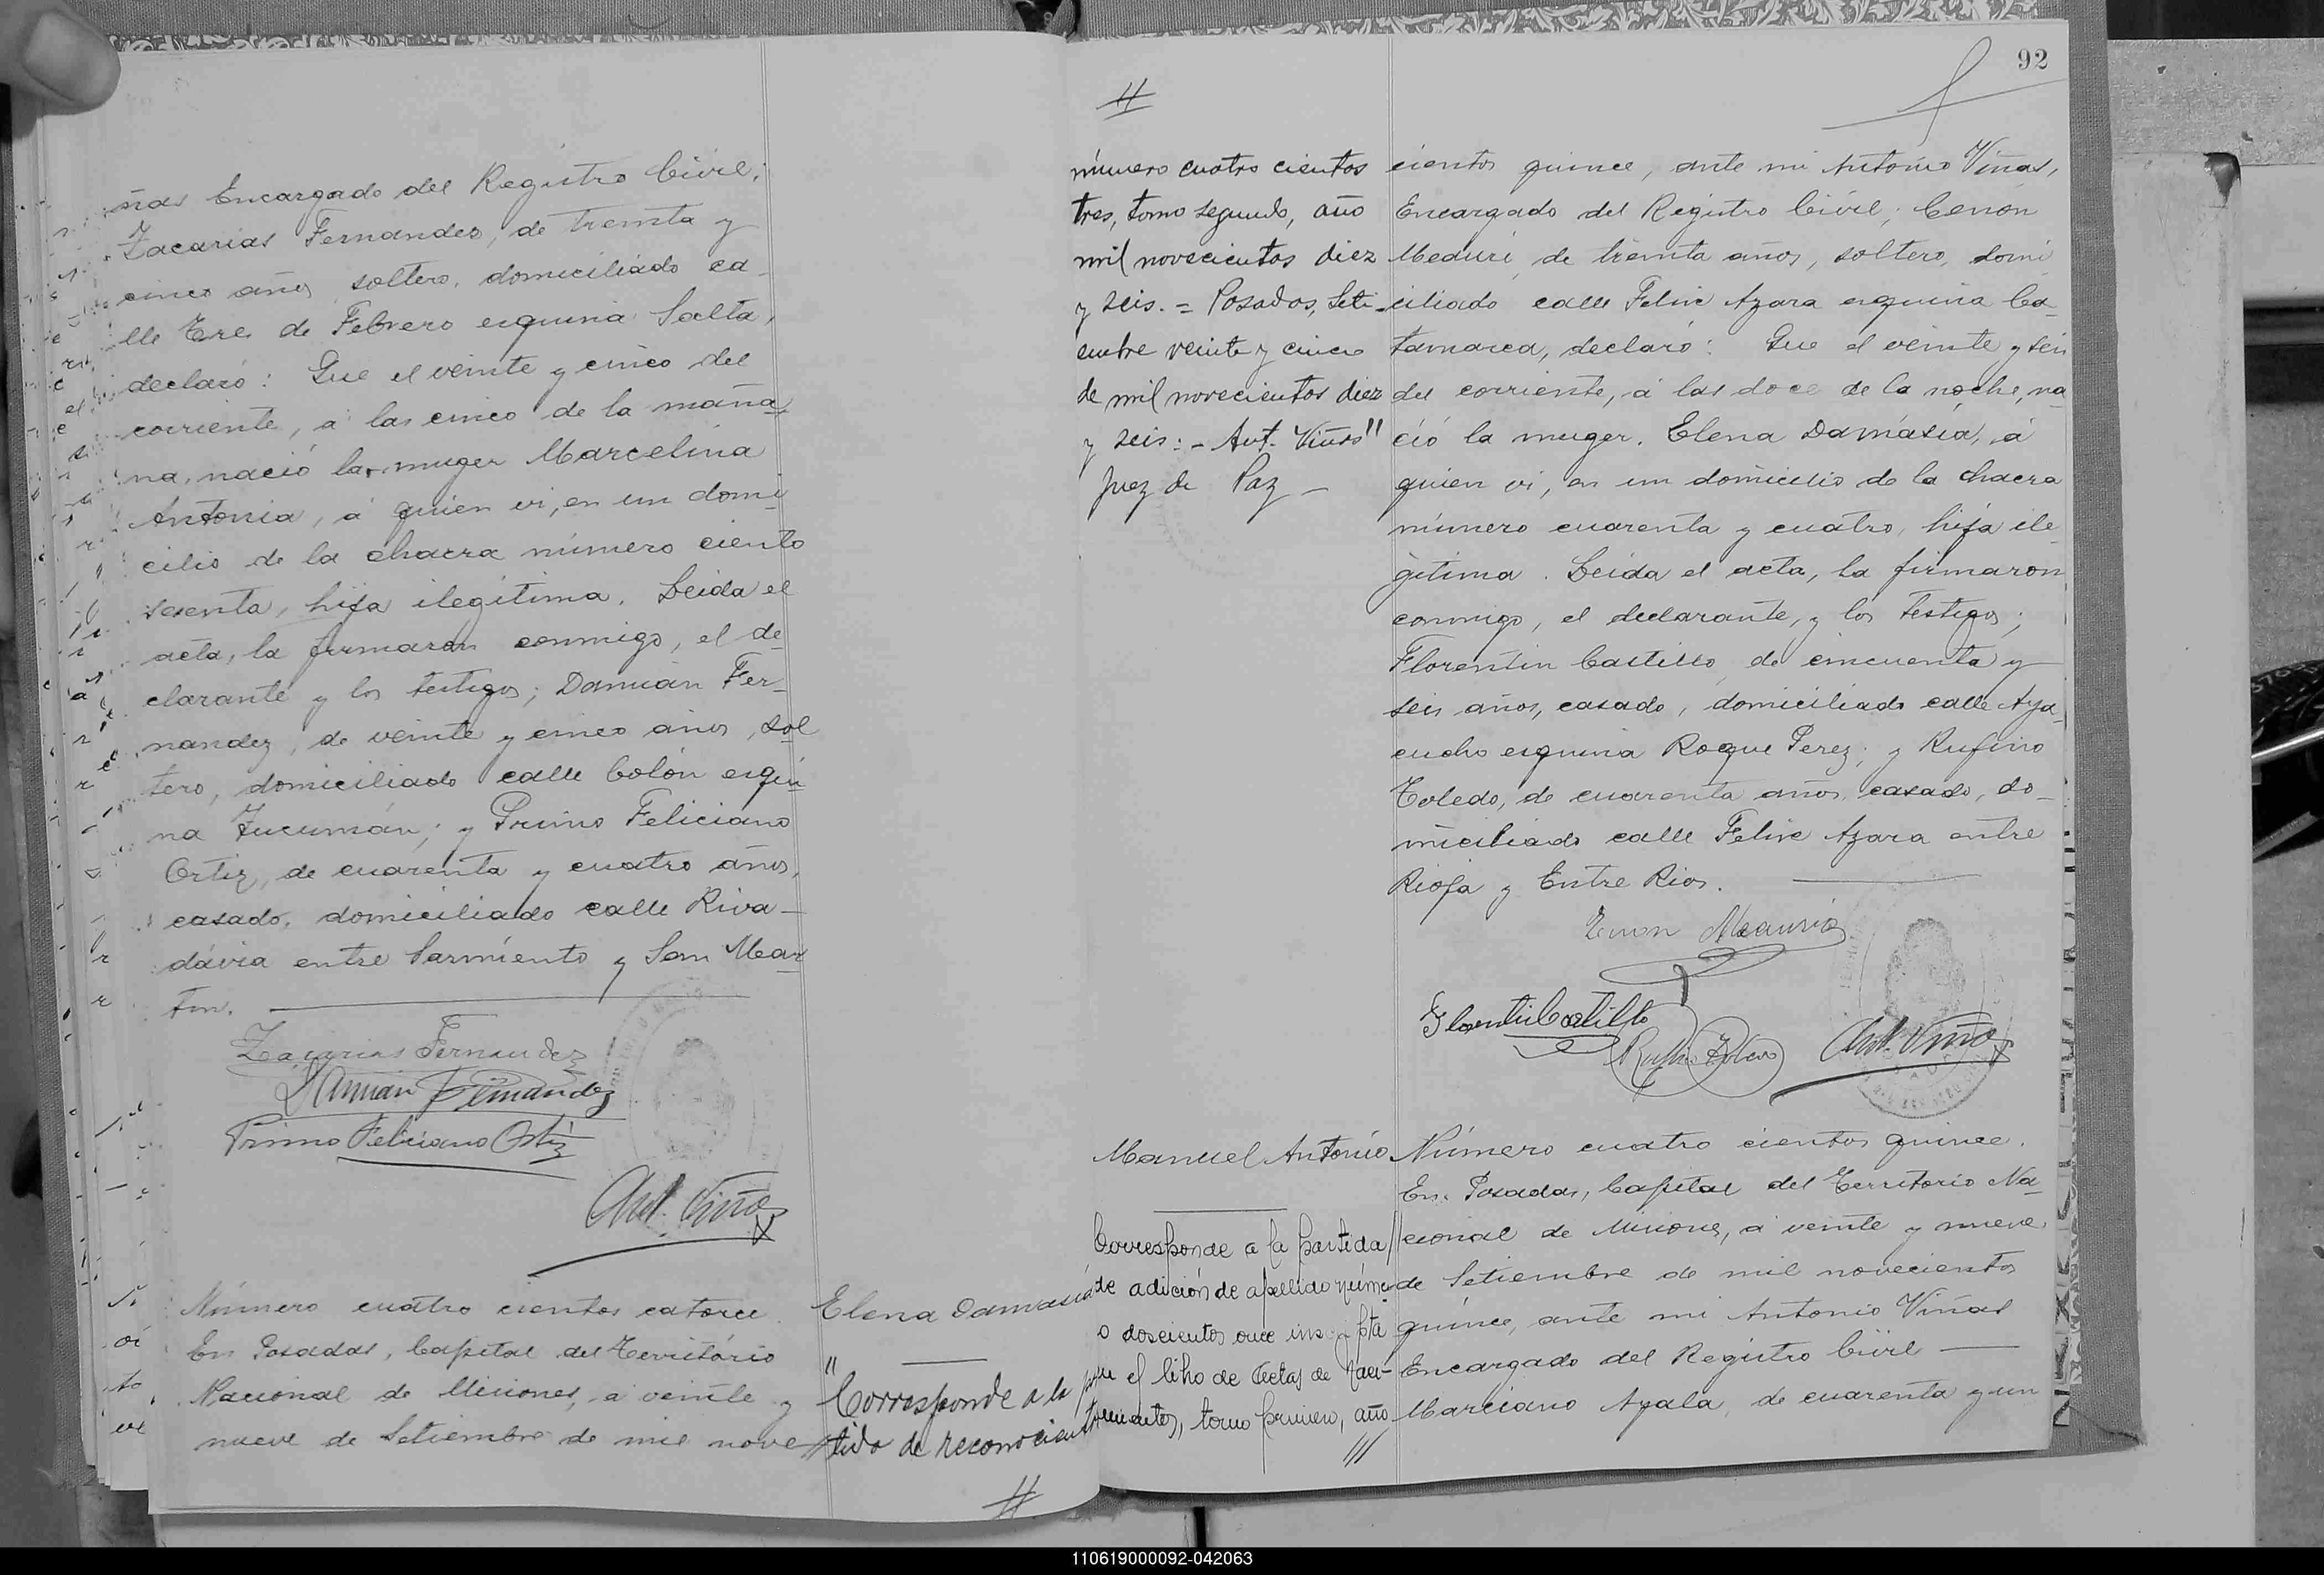 ñas Encargado del Registro Civil;
Zacarias Fernandez, de treinta y
cinco años, soltero, domiciliado ca-
lle Tres de Febrero esquina Salta,
declaró: Que el veinte y cinco del
corriente, á las cinco de la maña-
na, nació la muger Marcelina
Antonia, á quien vi, en un domi-
cilio de la chacra número ciento
sesenta, hija ilegítima. Leida el
acta, la firmaron conmigo, el de-
clarante y los testigos; Damián Fer-
nandez, de veinte y cinco años, sol
tero, domiciliado calle Colón esqui
na Tucumán; y Primo Feliciano
Ortiz, de cuarenta y cuatro años,
casado, domiciliado calle Riva-
dávia entre Sarmiento y San Mar
tin.
Zacarias Fernandez
Damian Fernandez
Primo Feliciano Ortiz
Ant. Viñas
Número cuatro cientos catorce.
En Posadas, Capital del Território
Nacional de Misiones, a veinte y
nueve de Setiembre de mil nove
Elena Damasia
"Corresponde a la par
tida de reconocimiento
#
92
#
número cuatro cientos
tres, tomo segundo, año
mil novecientos diez
y seis. = Posadas, Seti-
embre veinte y cinco
de mil novecientos diez
y seis: - Ant. Viñas"
Juez de Paz -
cientos quince, ante mi Antonio Viñas,
Encargado del Registro Civil; Cenón
Meduri, de treinta años, soltero, domi
ciliado calle Felix Azara esquina Ca-
tamarca, declaró: Que el veinte y seis
del corriente, á las doce de la noche, na
ció la muger. Elena Damásia, á
quien vi, en un domicilio de la chacra
número cuarenta y cuatro, hija ile-
gitima. Leida el acta, la firmaron
conmigo, el declarante, y los testigos;
Florentin Castillo, de cincuenta y
seis años, casado, domiciliado calle Aya-
cucho esquina Roque Perez; y Rufino
Toledo, de cuarenta años, casado, do-
miciliado calle Felix Azara entre
Rioja y Entre Rios.
Florentin Castillo
Rufino Toledo
Ant. Viñas
Manuel Antonio
Corresponde a la partida
de adición de apellido núme-
o doscientos once inscripta
en el libro de actas de naci-
mientos, tomo primero, año
///
Número cuatro cientos quince.
En Posadas, Capital del Territorio Na-
cional de Misiones, a veinte y nueve
de Setiembre de mil novecientos
quince, ante mi Antonio Viñas
Encargado del Registro Civil
Marciano Ayala, de cuarenta y un
110619000092-042063